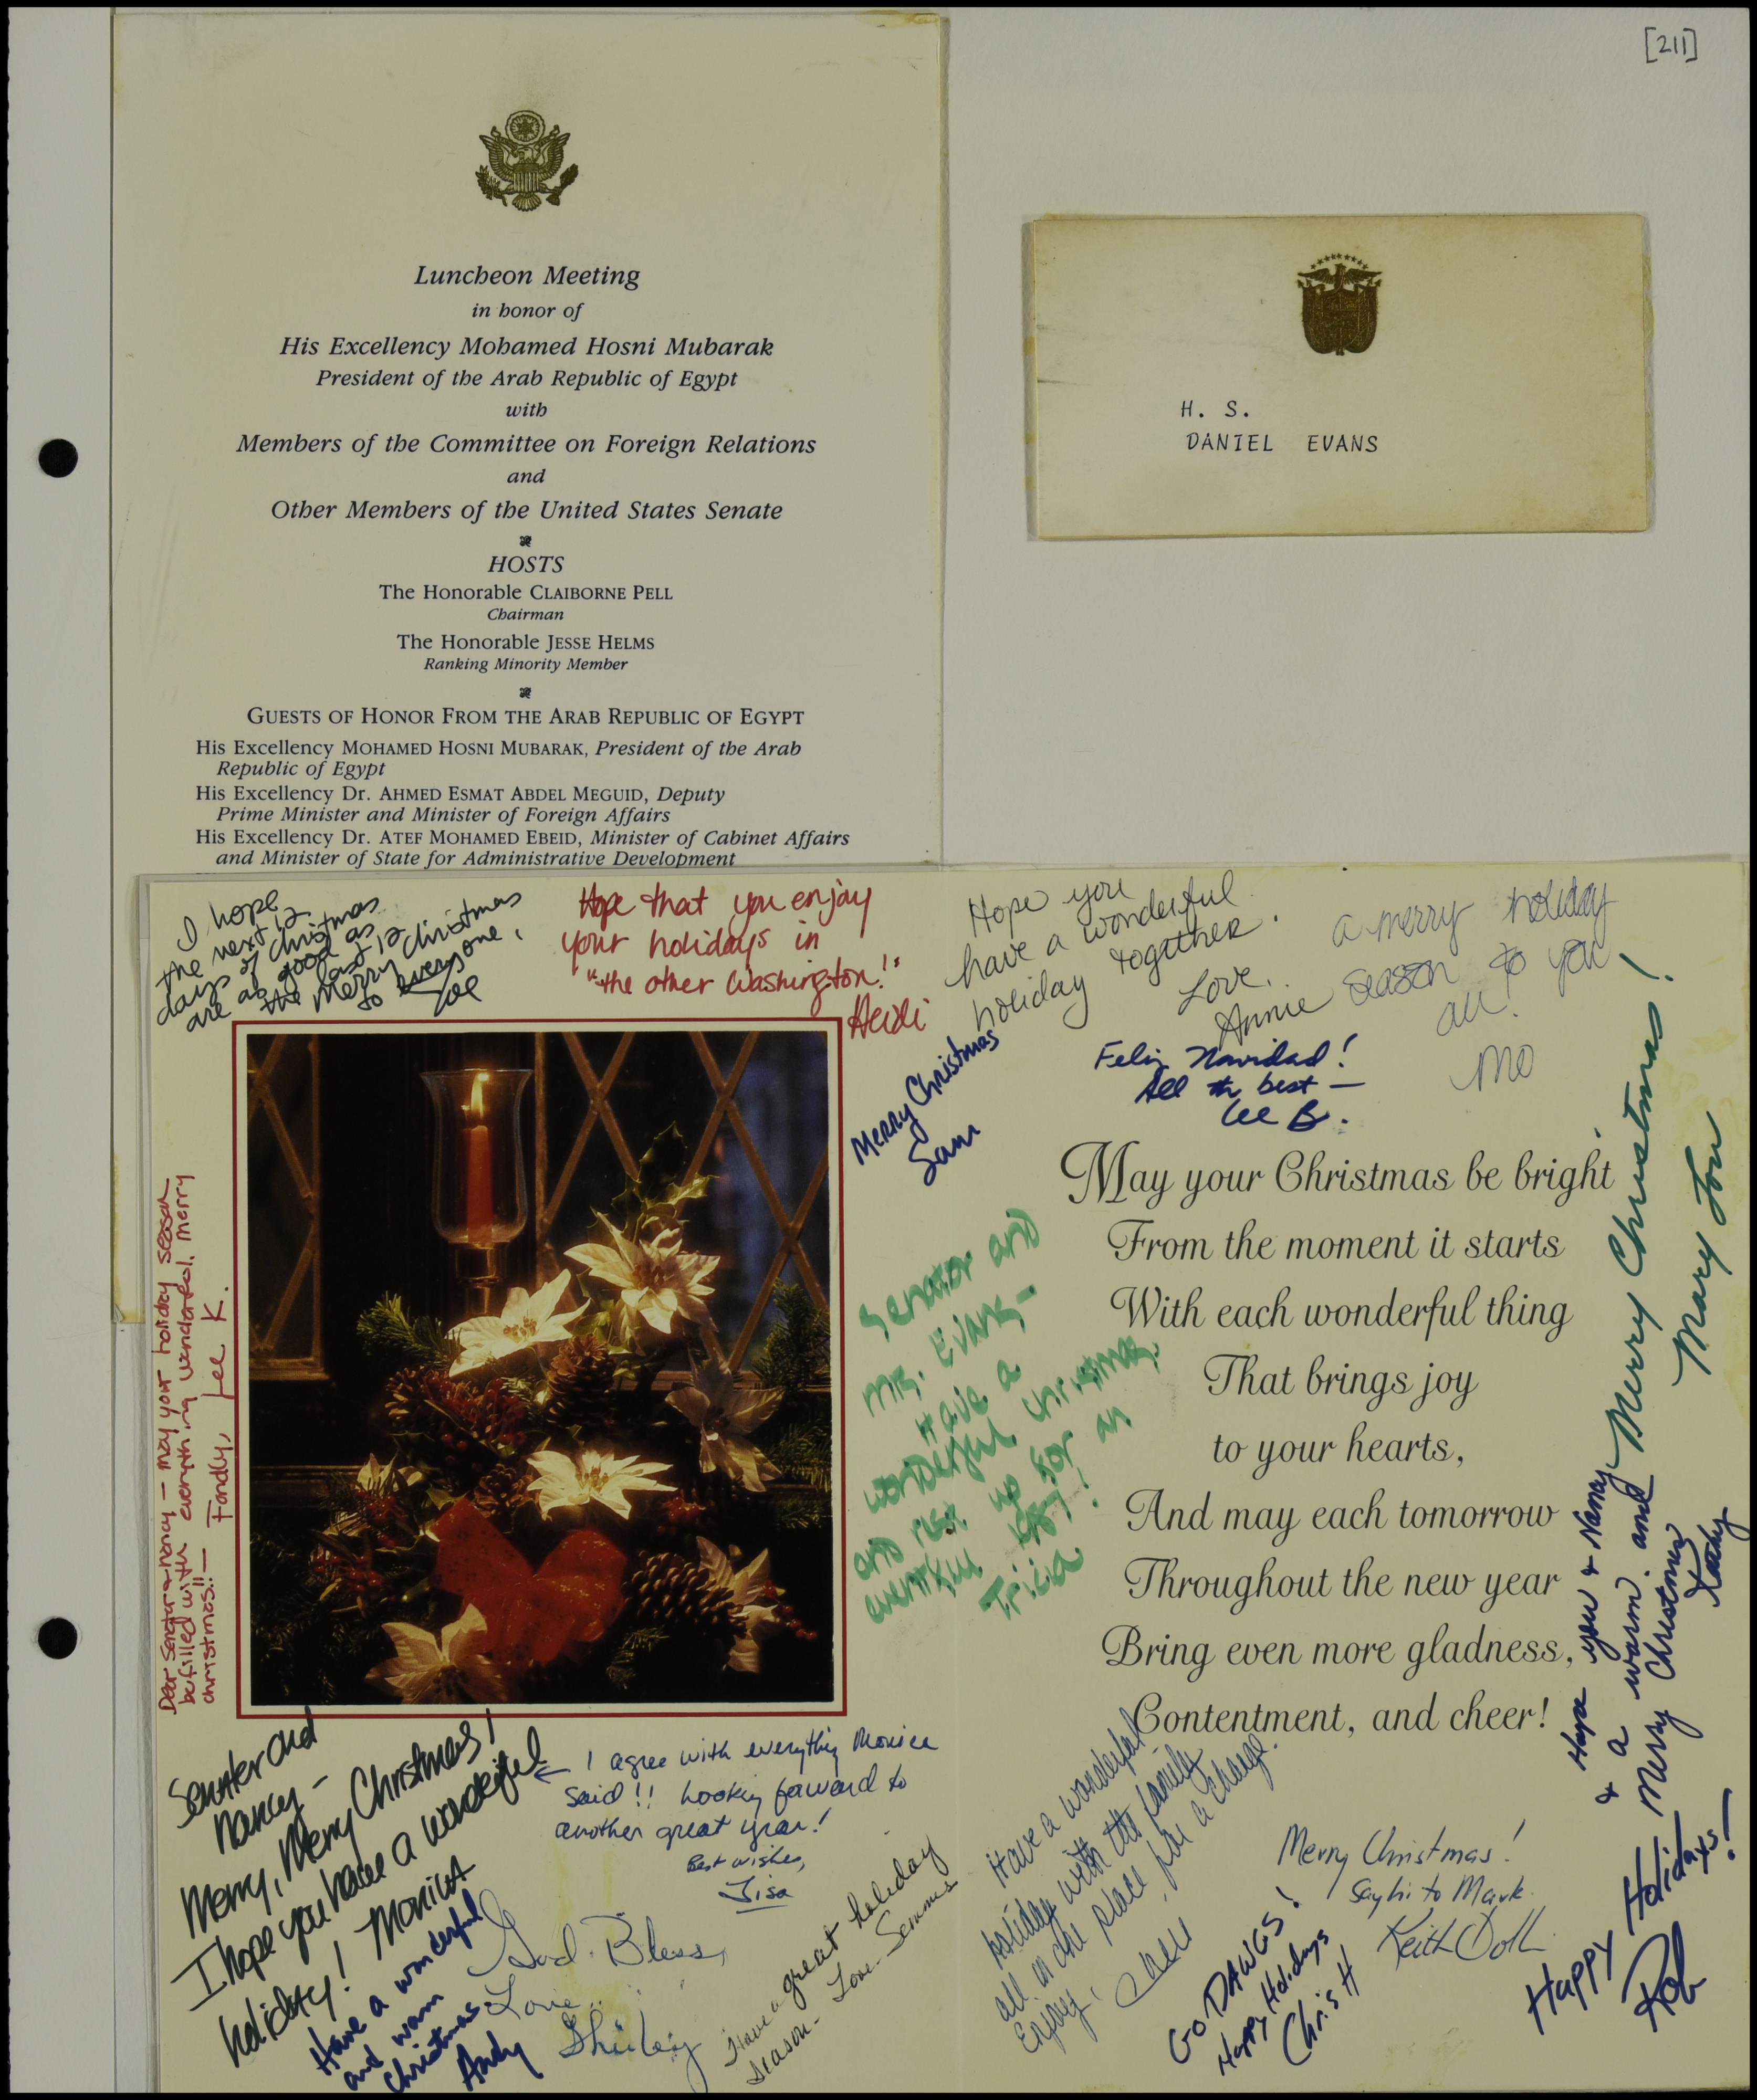 [211]
Luncheon Meeting
in honor of
His Excellency Mohamed Hosni Mubarak
President of the Arab Republic of Egypt
with
Members of the Committee on Foreign Relations
and
Other Members of the United States Senate
HOSTS
The Honorable CLAIBORNE PELL
Chairman
The Honorable JESSE HELMS
Ranking Minority Member
GUESTS OF HONOR FROM THE ARAB REPUBLIC OF EGYPT
His Excellency MOHAMED HOSNI MUBARAK, President of the Arab
Republic of Egypt
His Excellency Dr. AHMED ESMAT ABDEL MEGUID, Deputy
Prime Minister and Minister of Foreign Affairs
His Excellency Dr. ATEF MOHAMED EBEID, Minister of Cabinet Affairs
and Minister of State for Administrative Development
H. S.
DANIEL EVANS
I hope
the next 12
days of Christmas
are as good as
the last 12
Merry Christmas
to everyone,
Joe
Hope that you enjoy
your holidays in
"the other Washington!"
Heidi
Hope you
have a wonderful
holiday together.
Love,
Annie
a merry holiday
season to you
all!
Mo
Merry Christmas
Sam
Feliz Navidad!
All the best —
Lee B.
Merry Christmas!
Mary Lou
May your Christmas be bright
From the moment it starts
With each wonderful thing
That brings joy
to your hearts,
And may each tomorrow
Throughout the new year
Bring even more gladness,
Contentment, and cheer!
Senator and
Mrs. Evans –
Have a
wonderful Christmas
and rest up for an
eventful 1987!
Tricia
Dear Senator & Nancy — may your holiday season
be filled with everything wonderful. Merry
Christmas!! —
Fondly, Lee K.
Hope you & Nancy
& a warm and
Merry Christmas
Kathy
Senator and
Nancy –
Merry, Merry Christmas!
I hope you have a wonderful
holiday! Monica
← I agree with everything Monica
said!! Looking forward to
another great year!
Best wishes,
Lisa
Have a wonderful
and warm
Christmas
Andy
God Bless,
Love,
Shirley
Have a great holiday
season - Love -
Have a wonderful
holiday with the family
all in one place for a change.
Enjoy,
GO DAWGS!
Happy Holidays
Chris H
Merry Christmas!
Say hi to Mark.
Keith Doll
Happy Holidays!
Rob